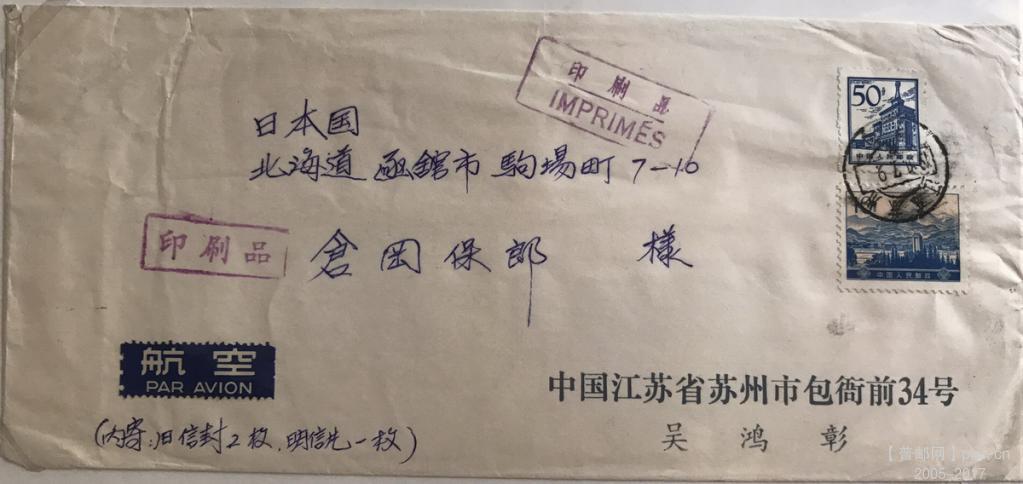 印刷品
IMPRIMÉS
50分
中国人民邮政
日本国
北海道 函館市 駒場町 7-10
印刷品
倉岡保郎 様
中国人民邮政
航空
PAR AVION
中国江苏省苏州市包衙前34号
(内寄:旧信封2枚,明信片一枚)
吴鸿彰
【普邮网】
2005-2017